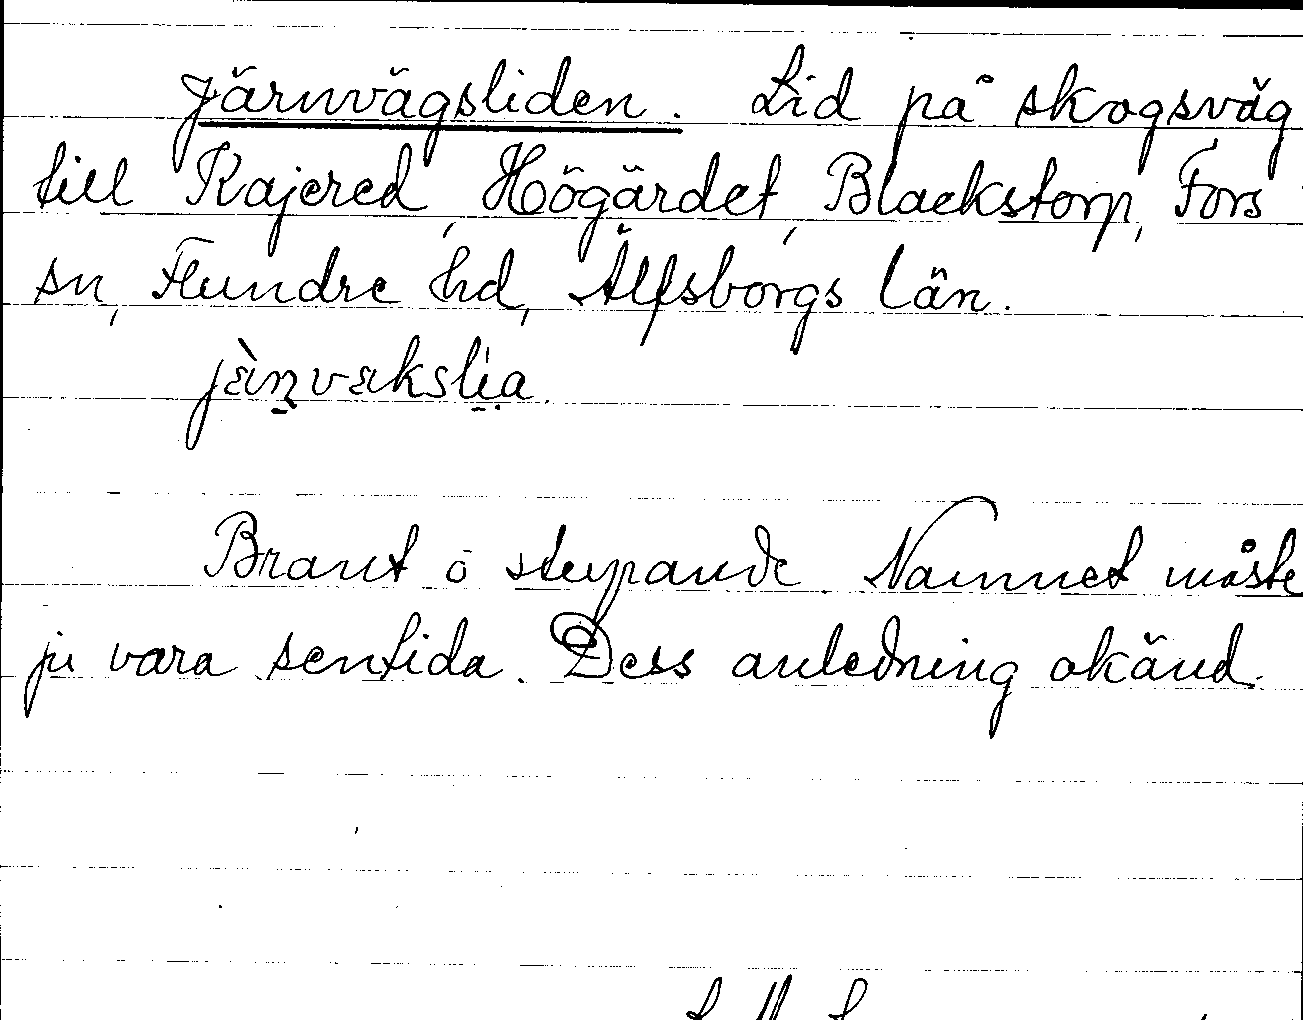 Järnvägsliden. Lid på skogsväg
till Kajered, Högärdet, Blackstorp, Fors
sn, Flundre hd, Älfsborgs län.
jèn̠vɛkslia.
Brant o stupande. Namnet måste
ju vara sentida. Dess anledning okänd.